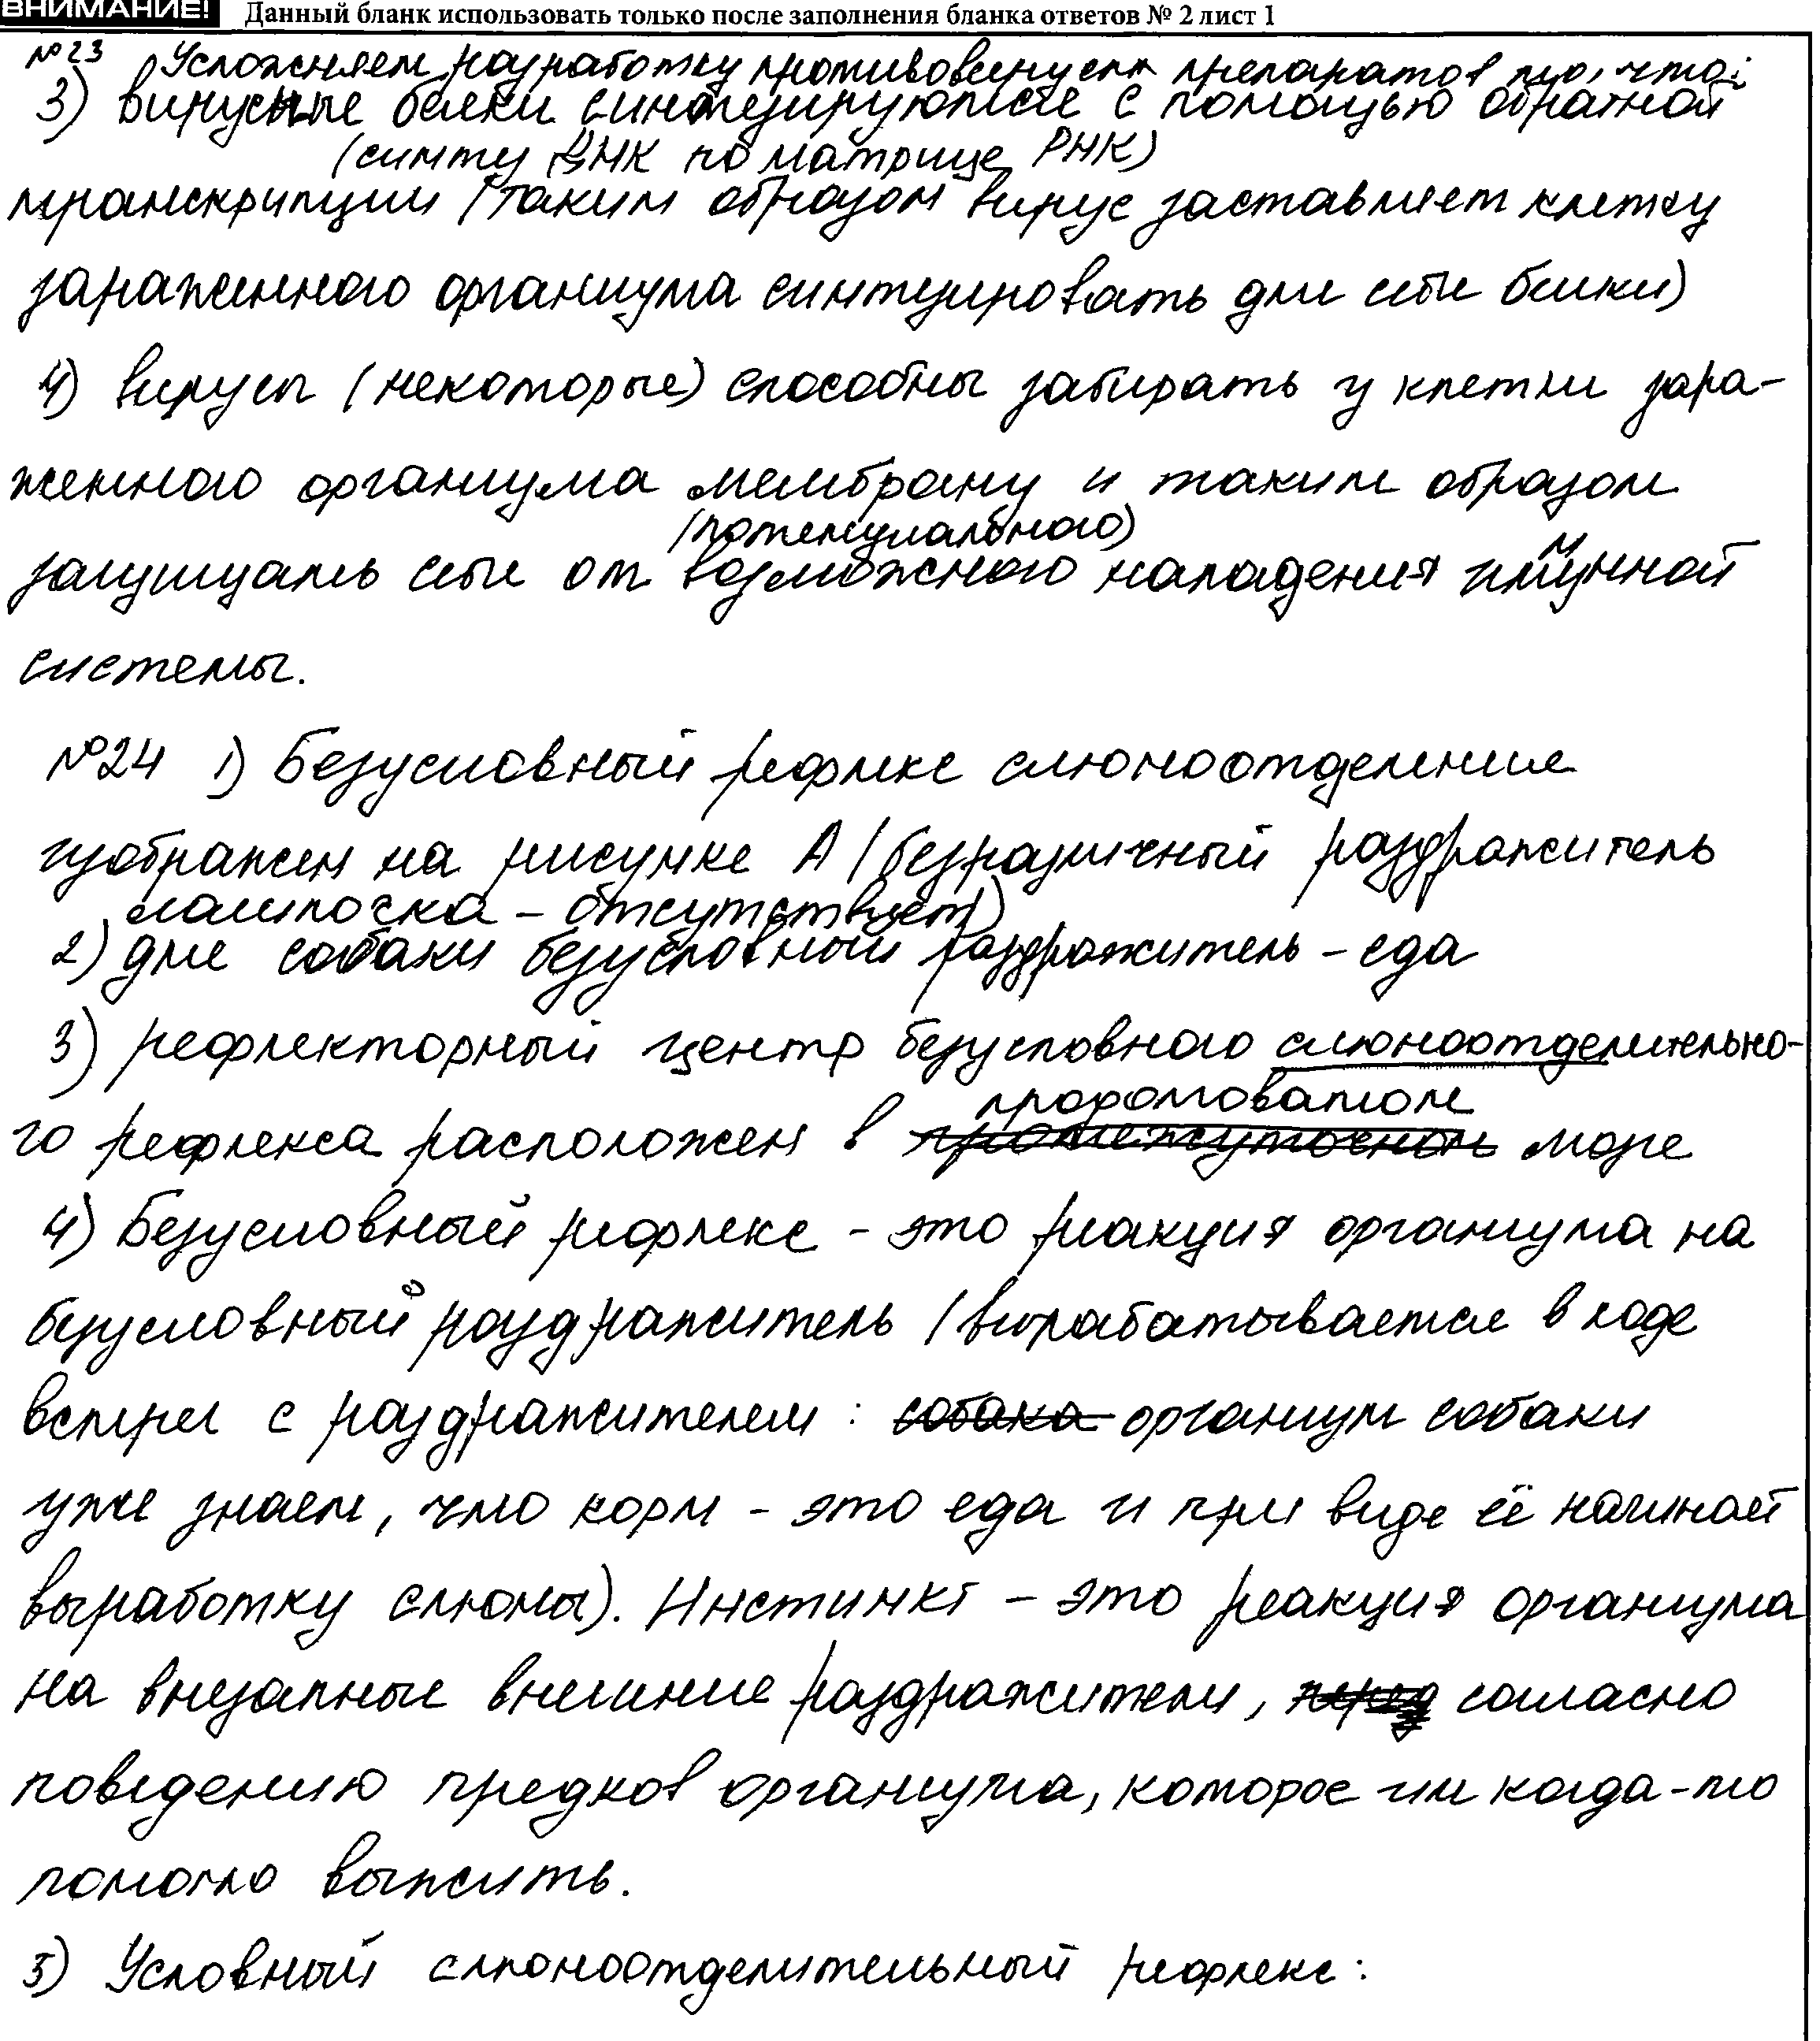 ВНИМАНИЕ! Данный бланк использовать только после заполнения бланка ответов № 2 лист 1
№23 Усложняет разработку противовирусн препаратов то, что:
3) вирусные белки синтезируются с помощью обратной
(синтез ДНК по матрице РНК)
транскрипции (таким образом вирус заставляет клетку
зараженного организма синтезировать для себя белки)
4) вирусы (некоторые) способны забирать у клетки зара-
женного организма мембрану и таким образом
(потенциального)
защищать себя от возможного нападения иммунной
системы.
№24 1) Безусловный рефлекс слюноотделение
изображен на рисунке А (безразличный раздражитель
лампочка - отсутствует)
2) для собаки безусловный раздражитель - еда
3) рефлекторный центр безусловного слюноотделительно-
продолговатом
го рефлекса расположен в промежуточном мозге
4) Безусловный рефлекс - это реакция организма на
безусловный раздражитель (вырабатывается в ходе
встречи с раздражителем: собака организм собаки
уже знает, что корм - это еда и при виде её начинает
выработку слюны). Инстинкт - это реакция организма
на внезапные внешние раздражители, согласно
поведению предков организма, которое им когда-то
помогло выжить.
5) Условный слюноотделительный рефлекс: